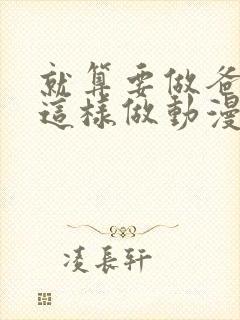 就算要做爸
這樣做動漫
凌長軒